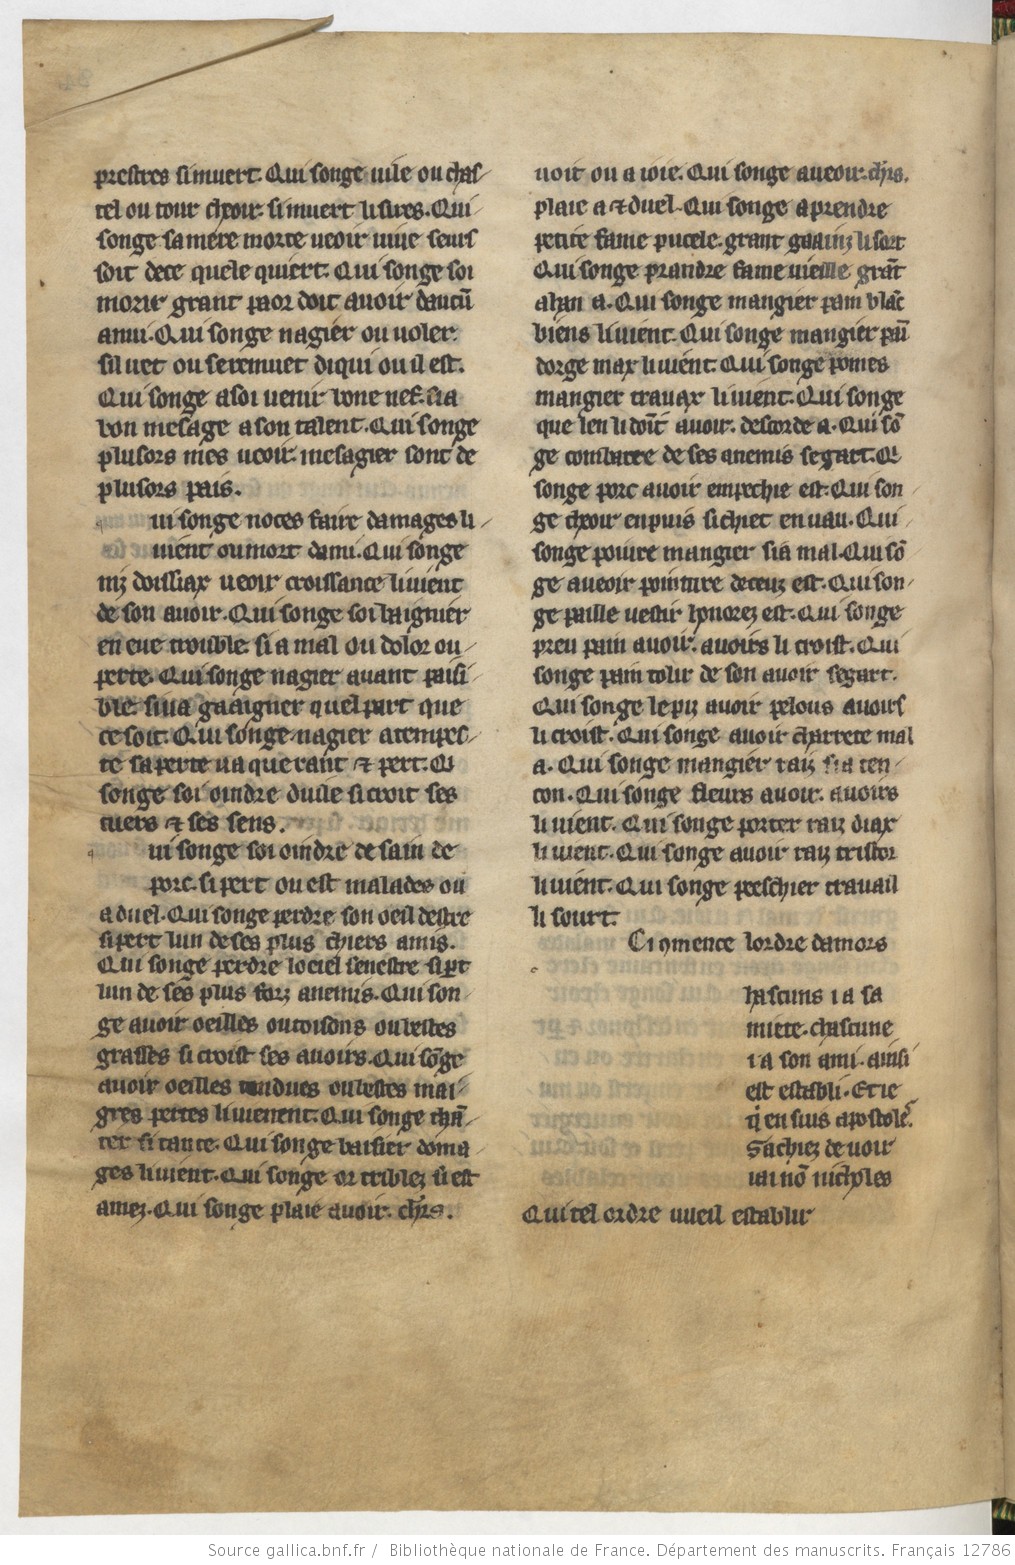 prestres si muert. Qui songe uile ou chas-
tel ou tour cheoir. si muert li sires. Qui
songe sa mere morte ueoir uiue seurs
soit de ce quele quiert. Qui songe soi
morir grant paor doit auoir daucũ
anui. Qui songe nagier ou uoler.
sil uet ou se remuet diqui ou il est.
Qui songe a soi uenir bone nef. si a
bon mesage a son talent. Qui songe
plusors mes ueoir. mesagier sont de
plusors pais.
ui songe noces faire damages li
uient ou mort dami. Qui songe
niz doissiax ueoir croissance li uient
de son auoir. Qui songe soi baignier
en eue trouble. si a mal ou dolor ou
perte. Qui songe nagier auant paisi-
ble. si ua gaaignier quel part que
ce soit. Qui songe nagier a tempes-
te sa perte ua querant ⁊ pert. Q̃i
songe soi oindre duile si croit ses
cuers ⁊ ses sens.
ui songe soi oindre de sain de
porc. si pert ou est malades ou
a duel. Qui songe perdre son oeil destre
si pert lun de ses plus chiers amis.
Qui songe perdre lo ciel senestre si p̱t
lun de ses plus forz anemis. Qui son-
ge auoir oeilles ou toisons ou bestes
grasses si croist ses auoirs. Qui sõge
auoir oeilles tondues ou bestes mai-
gres pertes li uienent. Qui songe chã-
ter si tance. Qui songe baisier doma-
ges li uient. Qui songe or triblez si est
amez. Qui songe plaie auoir. chīrs.
uoit ou a ioie. Qui songe a ueoir. chīrs.
plaie a ⁊ duel. Qui songe a prendre
petite fame pucele. grant gaainz li sort
Qui songe prandre fame uieille grãt
ahan a. Qui songe mangier pain blãc
biens li uient. Qui songe mangier paĩ
dorge max li uient. Qui songe pomes
mangier trauax li uient. Qui songe
que len li doĩt auoir. descorde a. Qui sõ
ge combatre de ses anemis se gart. Q̃i
songe porc auoir empechie est. Qui son
ge cheoir en puis si chiet en uau. Qui
songe poiure mangier si a mal. Qui sõ
ge a ueoir pointure deceuz est. Qui son-
ge paille uestir hynorez est. Qui songe
preu pain auoir. auoirs li croist. Qui
songe pain tolir de son auoir se gart.
Qui songe le piz auoir pelous auoirs
li croist. Qui songe auoir charrete mal
a. Qui songe mangier raiz si a ten-
con. Qui songe fleurs auoir. auoirs
li uient. Qui songe porter raiz diax
li uient. Qui songe auoir raiz tristor
li uient. Qui songe peeschier trauail
li sourt.
Ci ɔmence lordre damors
hascuns i a sa
miete. chascune
i a son ami. ainsi
est establi. Et ie
q̇ en suis apostole.
Sachiez de uoir
iai nõ nicholes
Qui tel ordre uueil establir